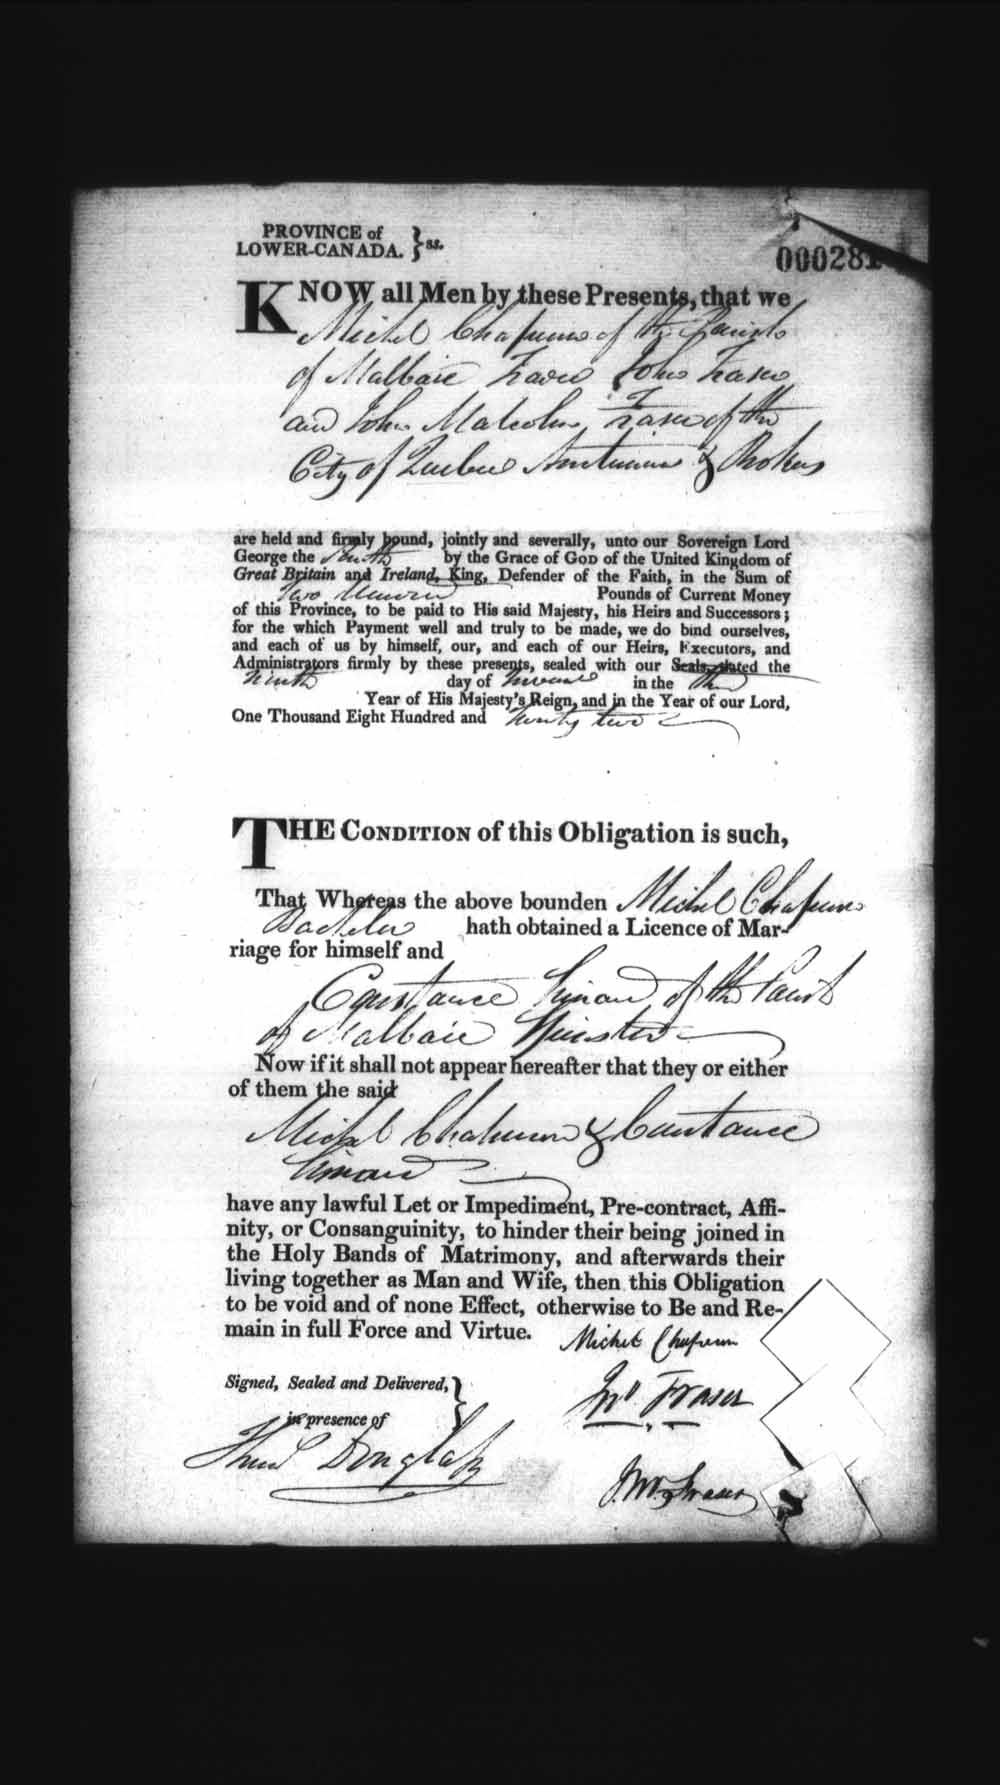 PROVINCE of
LOWER-CANADA. } ss.
000281
KNOW all Men by these Presents, that we
Michel Chaperon of the Parish
of Malbaie John Fraser
and John Malcolm Fraser of the
City of Quebec & Brokers
are held and firmly bound, jointly and severally, unto our Sovereign Lord
George the fourth by the Grace of GOD of the United Kingdom of
Great Britain and Ireland, King, Defender of the Faith, in the Sum of
Two Hundred Pounds of Current Money
of this Province, to be paid to His said Majesty, his Heirs and Successors;
for the which Payment well and truly to be made, we do bind ourselves,
and each of us by himself, our, and each of our Heirs, Executors, and
Administrators firmly by these presents, sealed with our Seals, dated the
day of in the third
Year of His Majesty's Reign, and in the Year of our Lord,
One Thousand Eight Hundred and Twenty two
THE CONDITION of this Obligation is such,
That Whereas the above bounden Michel Chaperon
Bachelor hath obtained a Licence of Mar-
riage for himself and
Constance Simard of the Parish
of Malbaie Spinster
Now if it shall not appear hereafter that they or either
of them the said
Michel Chaperon & Constance
Simard
have any lawful Let or Impediment, Pre-contract, Affi-
nity, or Consanguinity, to hinder their being joined in
the Holy Bands of Matrimony, and afterwards their
living together as Man and Wife, then this Obligation
to be void and of none Effect, otherwise to Be and Re-
main in full Force and Virtue.
Michel Chaperon
Signed, Sealed and Delivered, }
Jno Fraser
in presence of
Douglass
J. M. Fraser